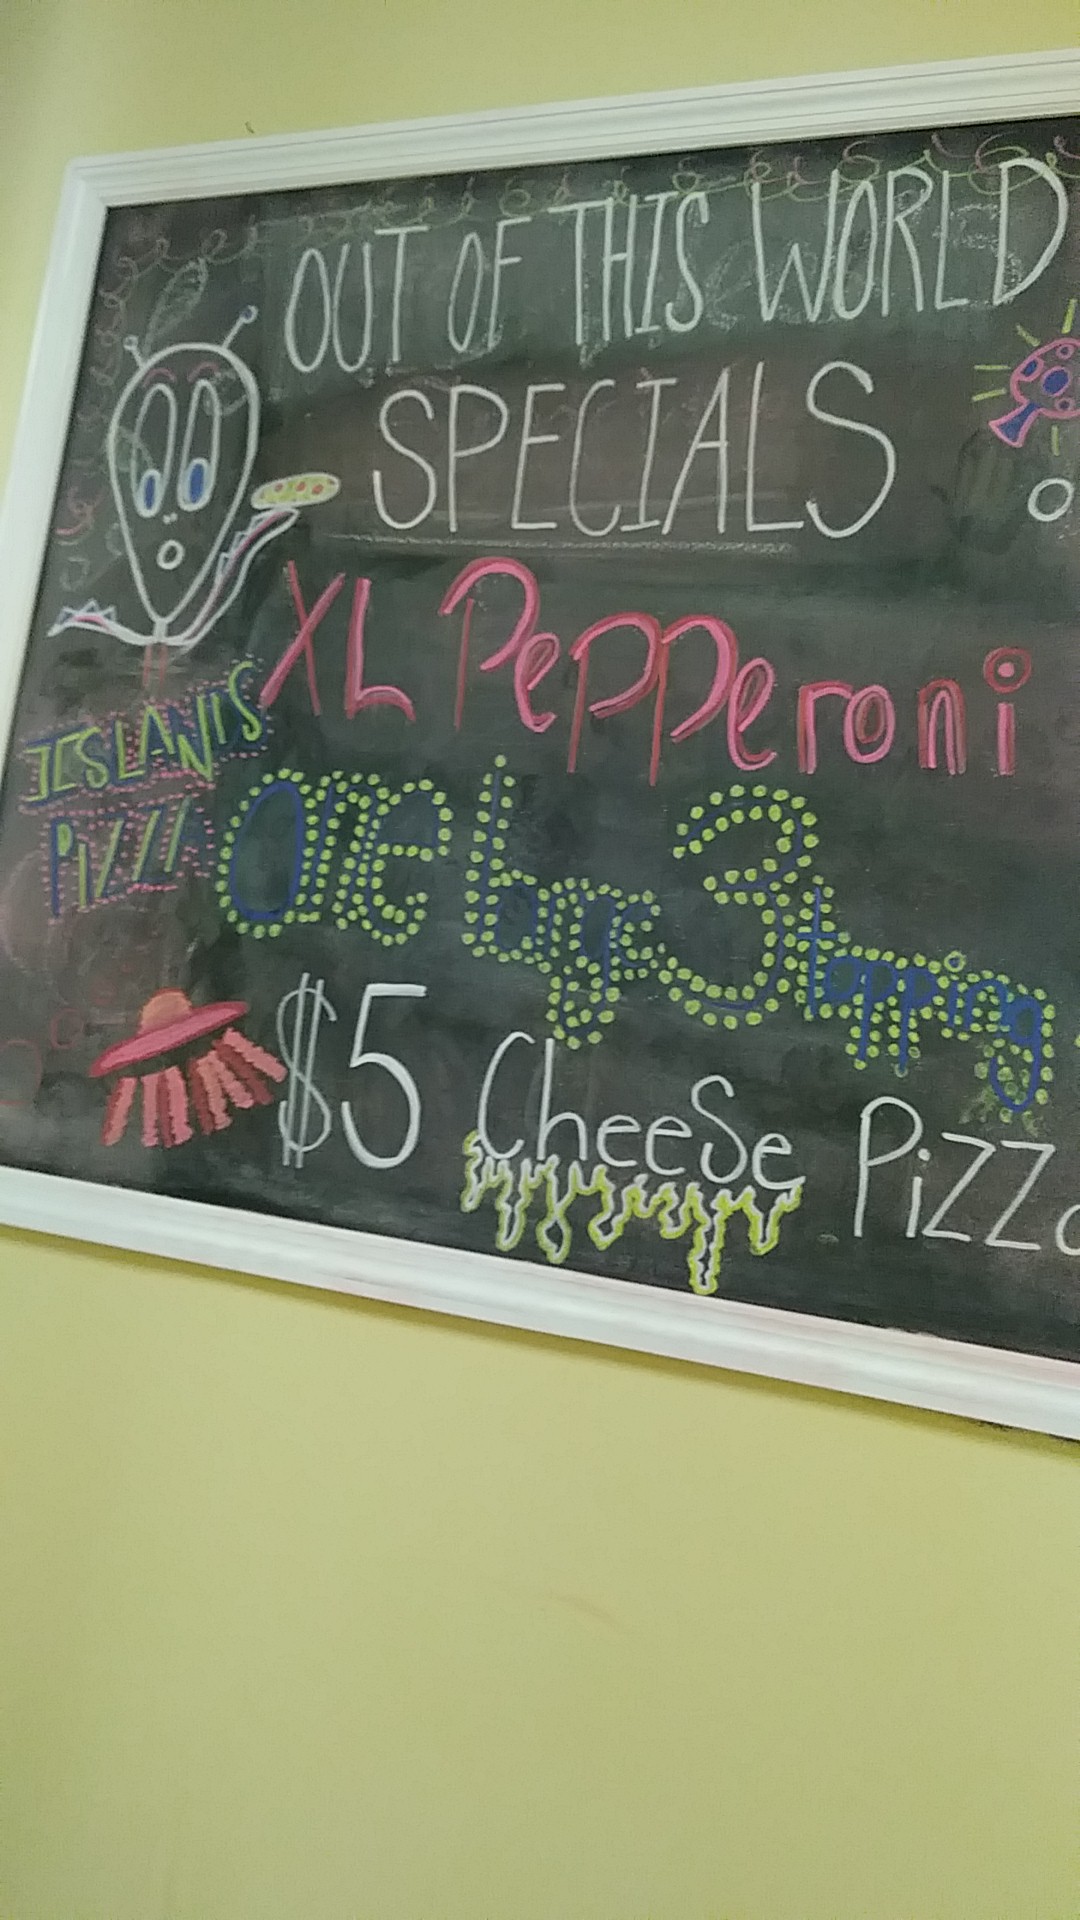 OUT OF THIS WORLD
SPECIALS
XL Pepperoni
PIZZA
one large 3 topping
$5 Cheese Pizza